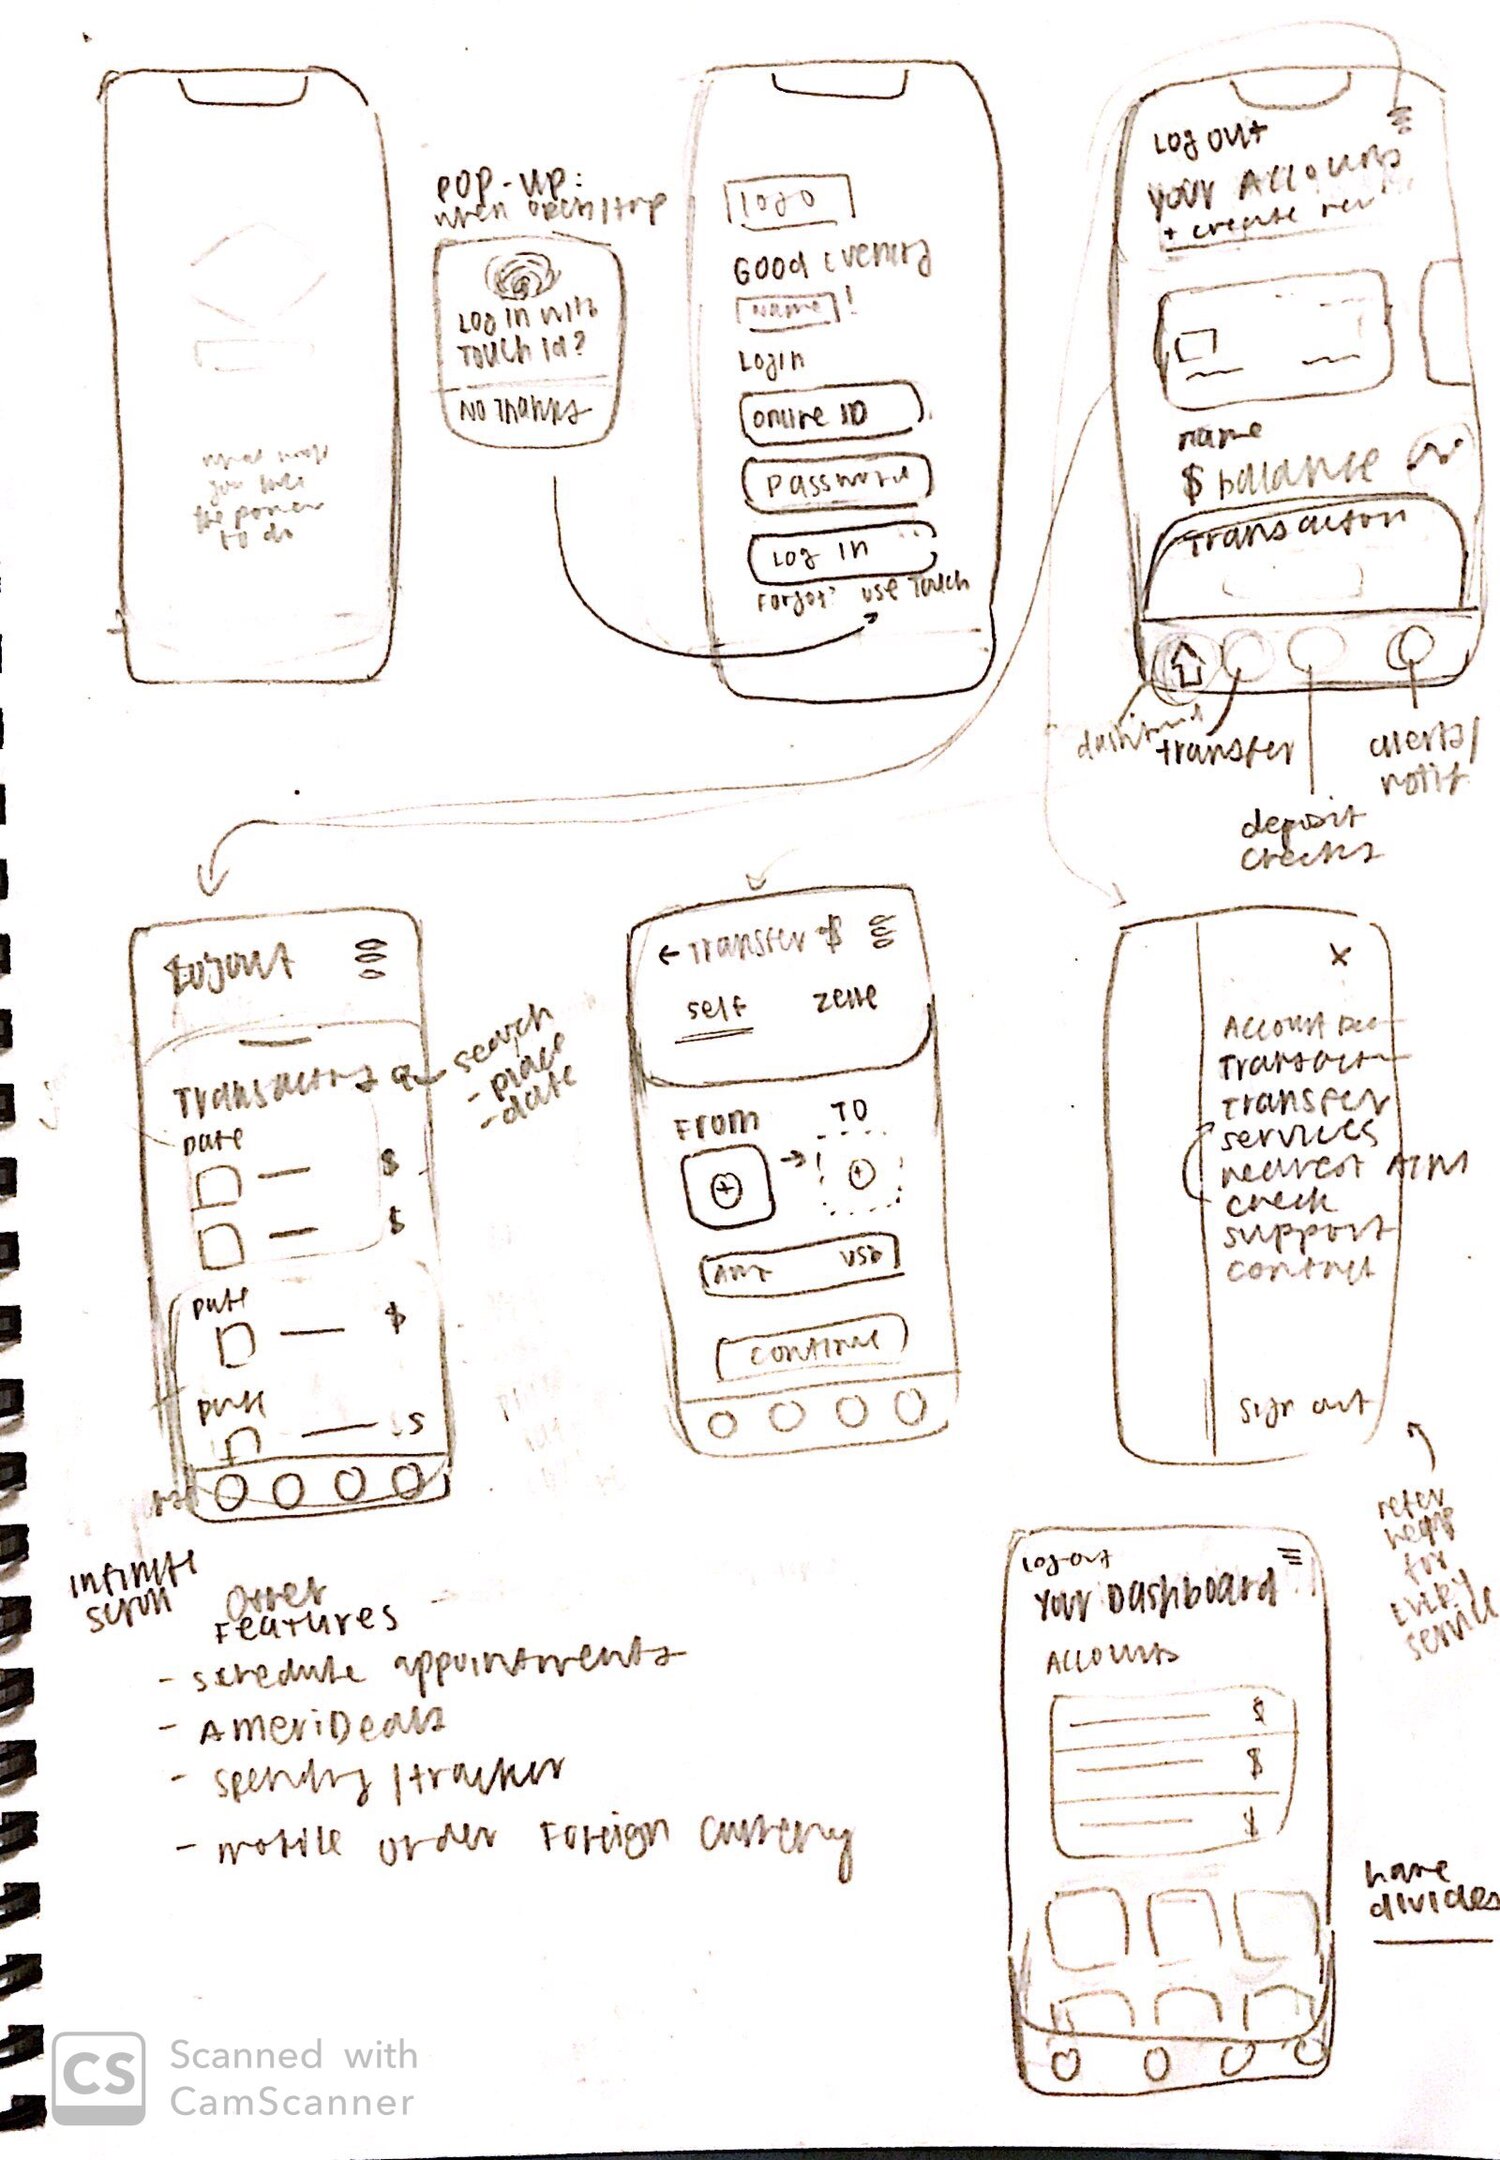 you have
the power
to do
POP-UP:
when open/tap
LOG IN WITH
TOUCH Id?
NO THANKS
logo
GOOD Evening
Name!
LogIn
Online ID
Password
Log In
Forgot? use Touch
Log out
Your Accounts
+ create new
name
$ balance
Transaction
dashboard
transfer
deposit
checks
alerts/
notif
Logout
Transactions
search
- place
- date
Date
$
$
Date
$
Date
$
infinite
scroll
← Transfer $
self
zelle
From
TO
Amt USD
continue
X
Account
Transaction
Transfer
services
nearest ATM
check
support
contact
sign out
for
every
service
Other
Features
- schedule appointments
- AmeriDeals
- spending/tracker
- mobile order Foreign Currency
Log out
Your Dashboard
Accounts
$
$
$
have
divides
CS
Scanned with
CamScanner